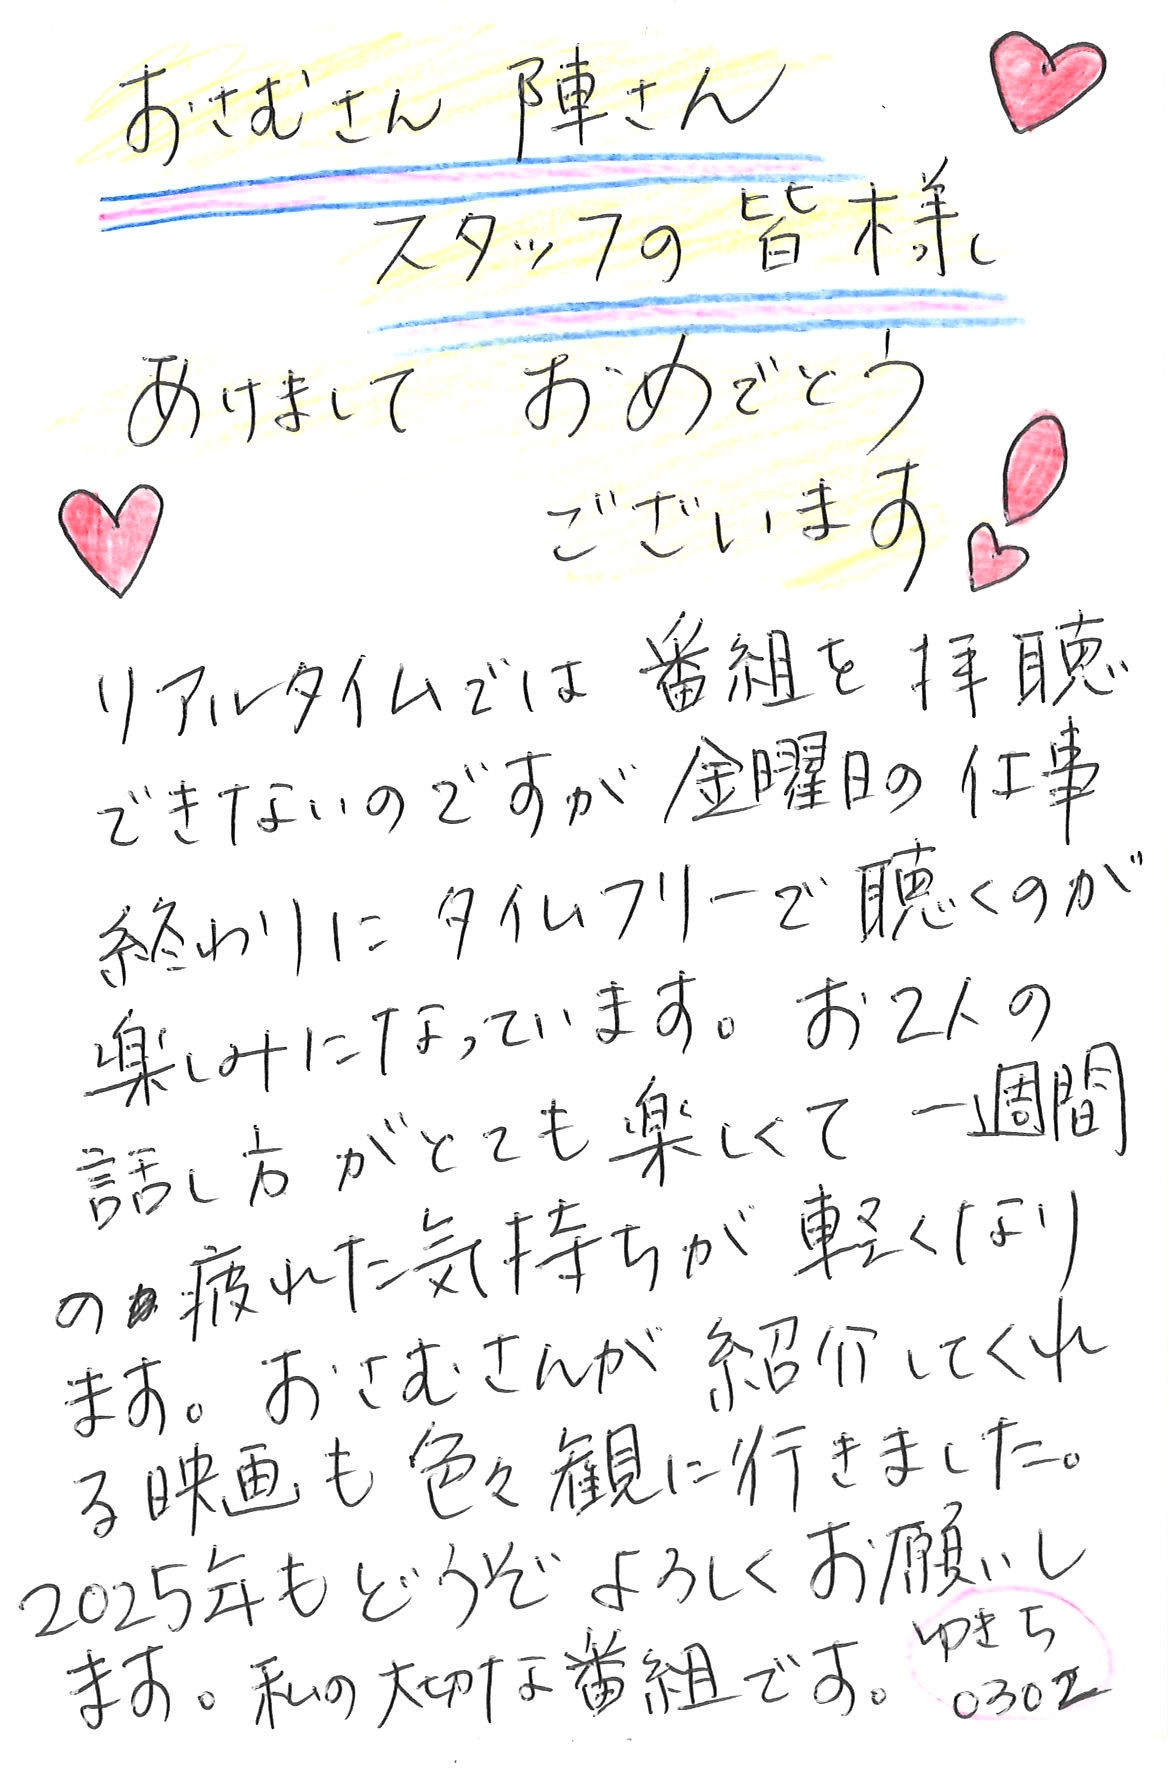 おさむさん 陣さん
スタッフの皆様
あけまして おめでとう
ございます
リアルタイムでは 番組を 拝聴
できないのですが 金曜日の 仕事
終わりに タイムフリーで 聴くのが
楽しみになっています。お2人の
話し方がとても楽しくて 一週間
の疲れた気持ちが 軽くなり
ます。おさむさんが 紹介してくれ
る映画も 色々観に行きました。
2025年もどうぞ よろしくお願いし
ます。私の大切な番組です。
ゆきち
0302